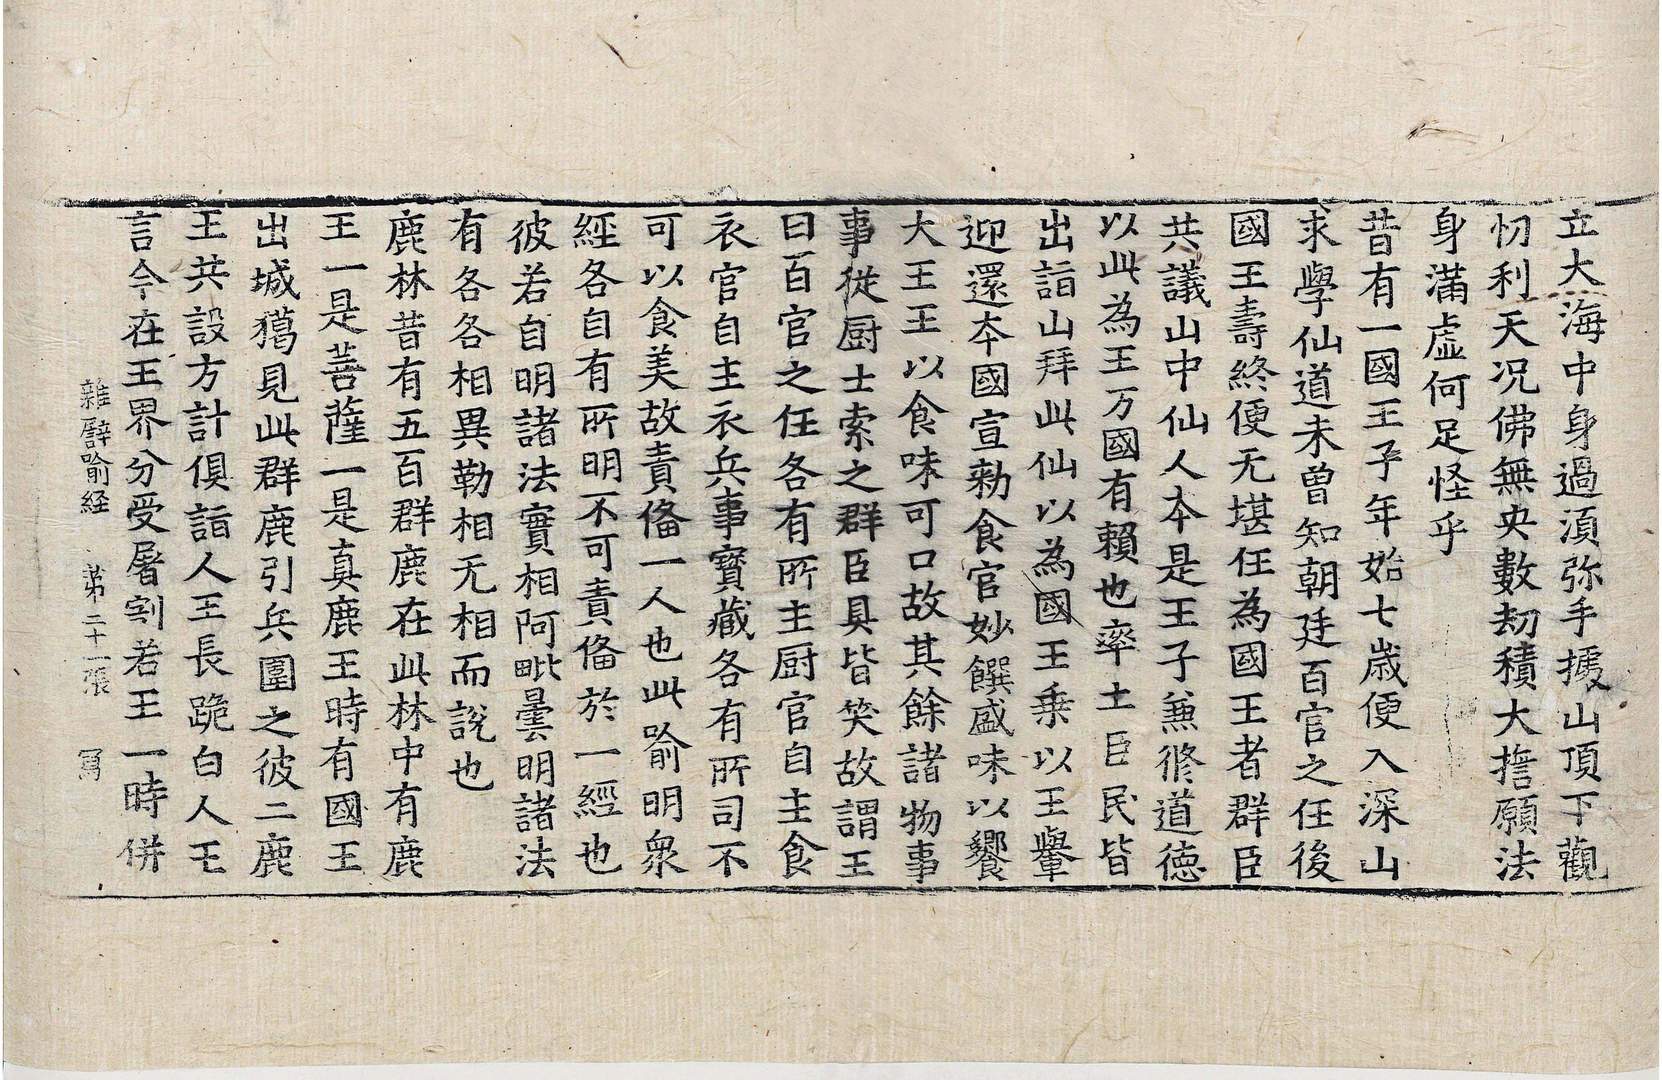 立大海中身過湏弥手攄山頂下觀
忉利天况佛無央數劫積大擔願法
身滿虛何足怪乎
昔有一國王子年始七歳便入深山
求學仙道未曾知朝廷百官之任後
國王壽終便无堪任為國王者群臣
共議山中仙人本是王子兼修道德
以此為王万國有賴也率土臣民皆
出詣山拜此仙以為國王乗以王轝
迎還夲國宣勑食官妙饌盛味以饗
大王王以食味可口故其餘諸物事
事從厨士索之群臣具皆笑故謂王
曰百官之任各有所主厨官自主食
衣官自主衣兵事寳藏各有所司不
可以食美故責俻一人也此喻明衆
經各自有所明不可責俻於一經也
彼若自明諸法實相阿毗曇明諸法
有各各相異勒相无相而說也
鹿林昔有五百群鹿在此林中有鹿
王一是菩薩一是真鹿王時有國王
出城獦見此群鹿引兵圍之彼二鹿
王共設方計俱詣人王長跪白人王
言今在王界分受屠割若王一時併
雜譬喻経 苐二十一張 冩